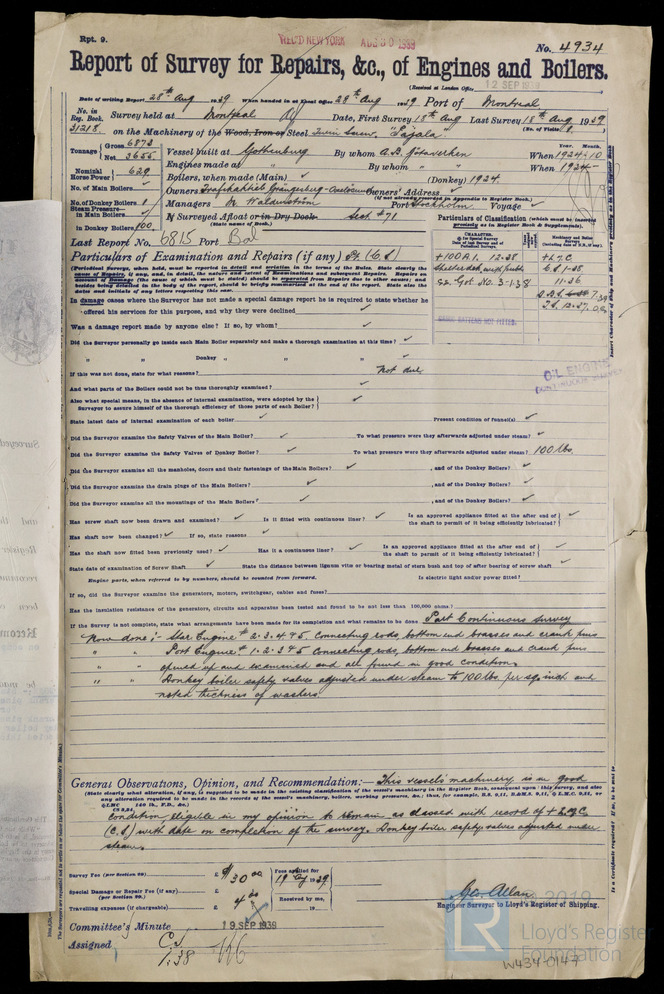 Rpt. 9.
REC'D NEW YORK AUG 30 1939
No. 4934
Report of Survey for Repairs, &c., of Engines and Boilers.
(Received at London Office 12 SEP 1939
Date of writing Report 28th Aug 1939 When handed in at Local Office 28th Aug 1939 Port of Montreal
No. in Reg. Book. Survey held at Montreal Date, First Survey 18th Aug Last Survey 18th Aug 1939
31218. on the Machinery of the Wood, Iron or Steel Twin Screw "Lajala" (No. of Visits 1.
Tonnage Gross 6873 Net 3655 Vessel built at Gothenburg By whom A.B. Götaverken When 1924-10
Nominal Horse Power 629 Engines made at " By whom " When 1924-
No. of Main Boilers Boilers, when made (Main) (Donkey) 1924
Owners Trafikaktieb Grängesberg-Oxelösund Owners' Address
(if not already recorded in Appendix to Register Book.)
No. of Donkey Boilers 1 Managers Port Stockholm Voyage
Steam Pressure— in Main Boilers
in Donkey Boilers 100. If Surveyed Afloat or in Dry Dock Sect #71
(State name of Dock.)
Last Report No. 6815 Port Bal
Particulars of Classification (which must be inserted precisely as in Register Book & Supplements).
+100A1. 12-38 +L.M.C.
Shelterdeck with freeb C.S. 1-38
SS. Got. No. 3-1.38 11-36
CARGO BATTENS NOT FITTED.
OIL ENGINE
Particulars of Examination and Repairs (if any) Pt. (C.S)
(Periodical Surveys, when held, must be reported in detail and seriatim in the terms of the Rules.
In damage cases where the Surveyor has not made a special damage report he is required to state whether he
offered his services for this purpose, and why they were declined
Was a damage report made by anyone else? If so, by whom?
Did the Surveyor personally go inside each Main Boiler separately and make a thorough examination at this time?
" " Donkey " " "
If this was not done, state for what reasons? Not due
And what parts of the Boilers could not be thus thoroughly examined?
Also what special means, in the absence of internal examination, were adopted by the
Surveyor to assure himself of the thorough efficiency of those parts of each Boiler?
State latest date of internal examination of each boiler Present condition of funnel(s)
Did the Surveyor examine the Safety Valves of the Main Boiler? To what pressure were they afterwards adjusted under steam?
Did the Surveyor examine the Safety Valves of Donkey Boiler? To what pressure were they afterwards adjusted under steam? 100 lbs.
Did the Surveyor examine all the manholes, doors and their fastenings of the Main Boilers? , and of the Donkey Boilers?
Did the Surveyor examine the drain plugs of the Main Boilers? , and of the Donkey Boilers?
Did the Surveyor examine all the mountings of the Main Boilers? , and of the Donkey Boilers?
Has screw shaft now been drawn and examined? Is it fitted with continuous liner? Is an approved appliance fitted at the after end of the shaft to permit of it being efficiently lubricated?
Has shaft now been changed? If so, state reasons
Has the shaft now fitted been previously used? Has it a continuous liner? Is an approved appliance fitted at the after end of the shaft to permit of it being efficiently lubricated?
State date of examination of Screw Shaft State the distance between lignum vitæ or bearing metal of stern bush and top of after bearing of screw shaft
Engine parts, when referred to by numbers, should be counted from forward. Is electric light and/or power fitted?
If so, did the Surveyor examine the generators, motors, switchgear, cables and fuses?
Has the insulation resistance of the generators, circuits and apparatus been tested and found to be not less than 100,000 ohms?
If the Survey is not complete, state what arrangements have been made for its completion and what remains to be done Part Continuous Survey
Now done:- Star Engine # 2.3.4 & 5. Connecting rods, bottom end brasses and crank pins
" " Port Engine # 1.2.3 & 5 Connecting rods, bottom end brasses and crank pins
" " opened up and examined and all found in good condition.
" " Donkey boiler safety valves adjusted under steam to 100 lbs. per sq. inch and
noted thickness of washers.
General Observations, Opinion, and Recommendation:— This vessel's machinery is in good
(State clearly what alteration, if any, is suggested to be made in the existing classification of the vessel's machinery in the Register Book, consequent upon this survey, and also
any alteration required to be made in the records of the vessel's machinery, boilers, working pressures, &c.; thus, for example, B.S. 9,11, B.&M.S. 9,11, L.M.C. 9,11, or
condition, eligible in my opinion to remain as classed with record of + L.M.C
(C.S) with date on completion of the survey. Donkey boiler safety valves adjusted under
steam.
Survey Fee (per Section 29) £ $30.00 Fees applied for 19 1939
Special Damage or Repair Fee (if any) (per Section 29.) £ Received by me,
Travelling expenses (if chargeable) £
Geo. Allan
Engineer Surveyor to Lloyd's Register of Shipping.
Committee's Minute 19 SEP 1939
Assigned C.S 1.38
© 2019
LR Lloyd's Register Foundation
W434-0147